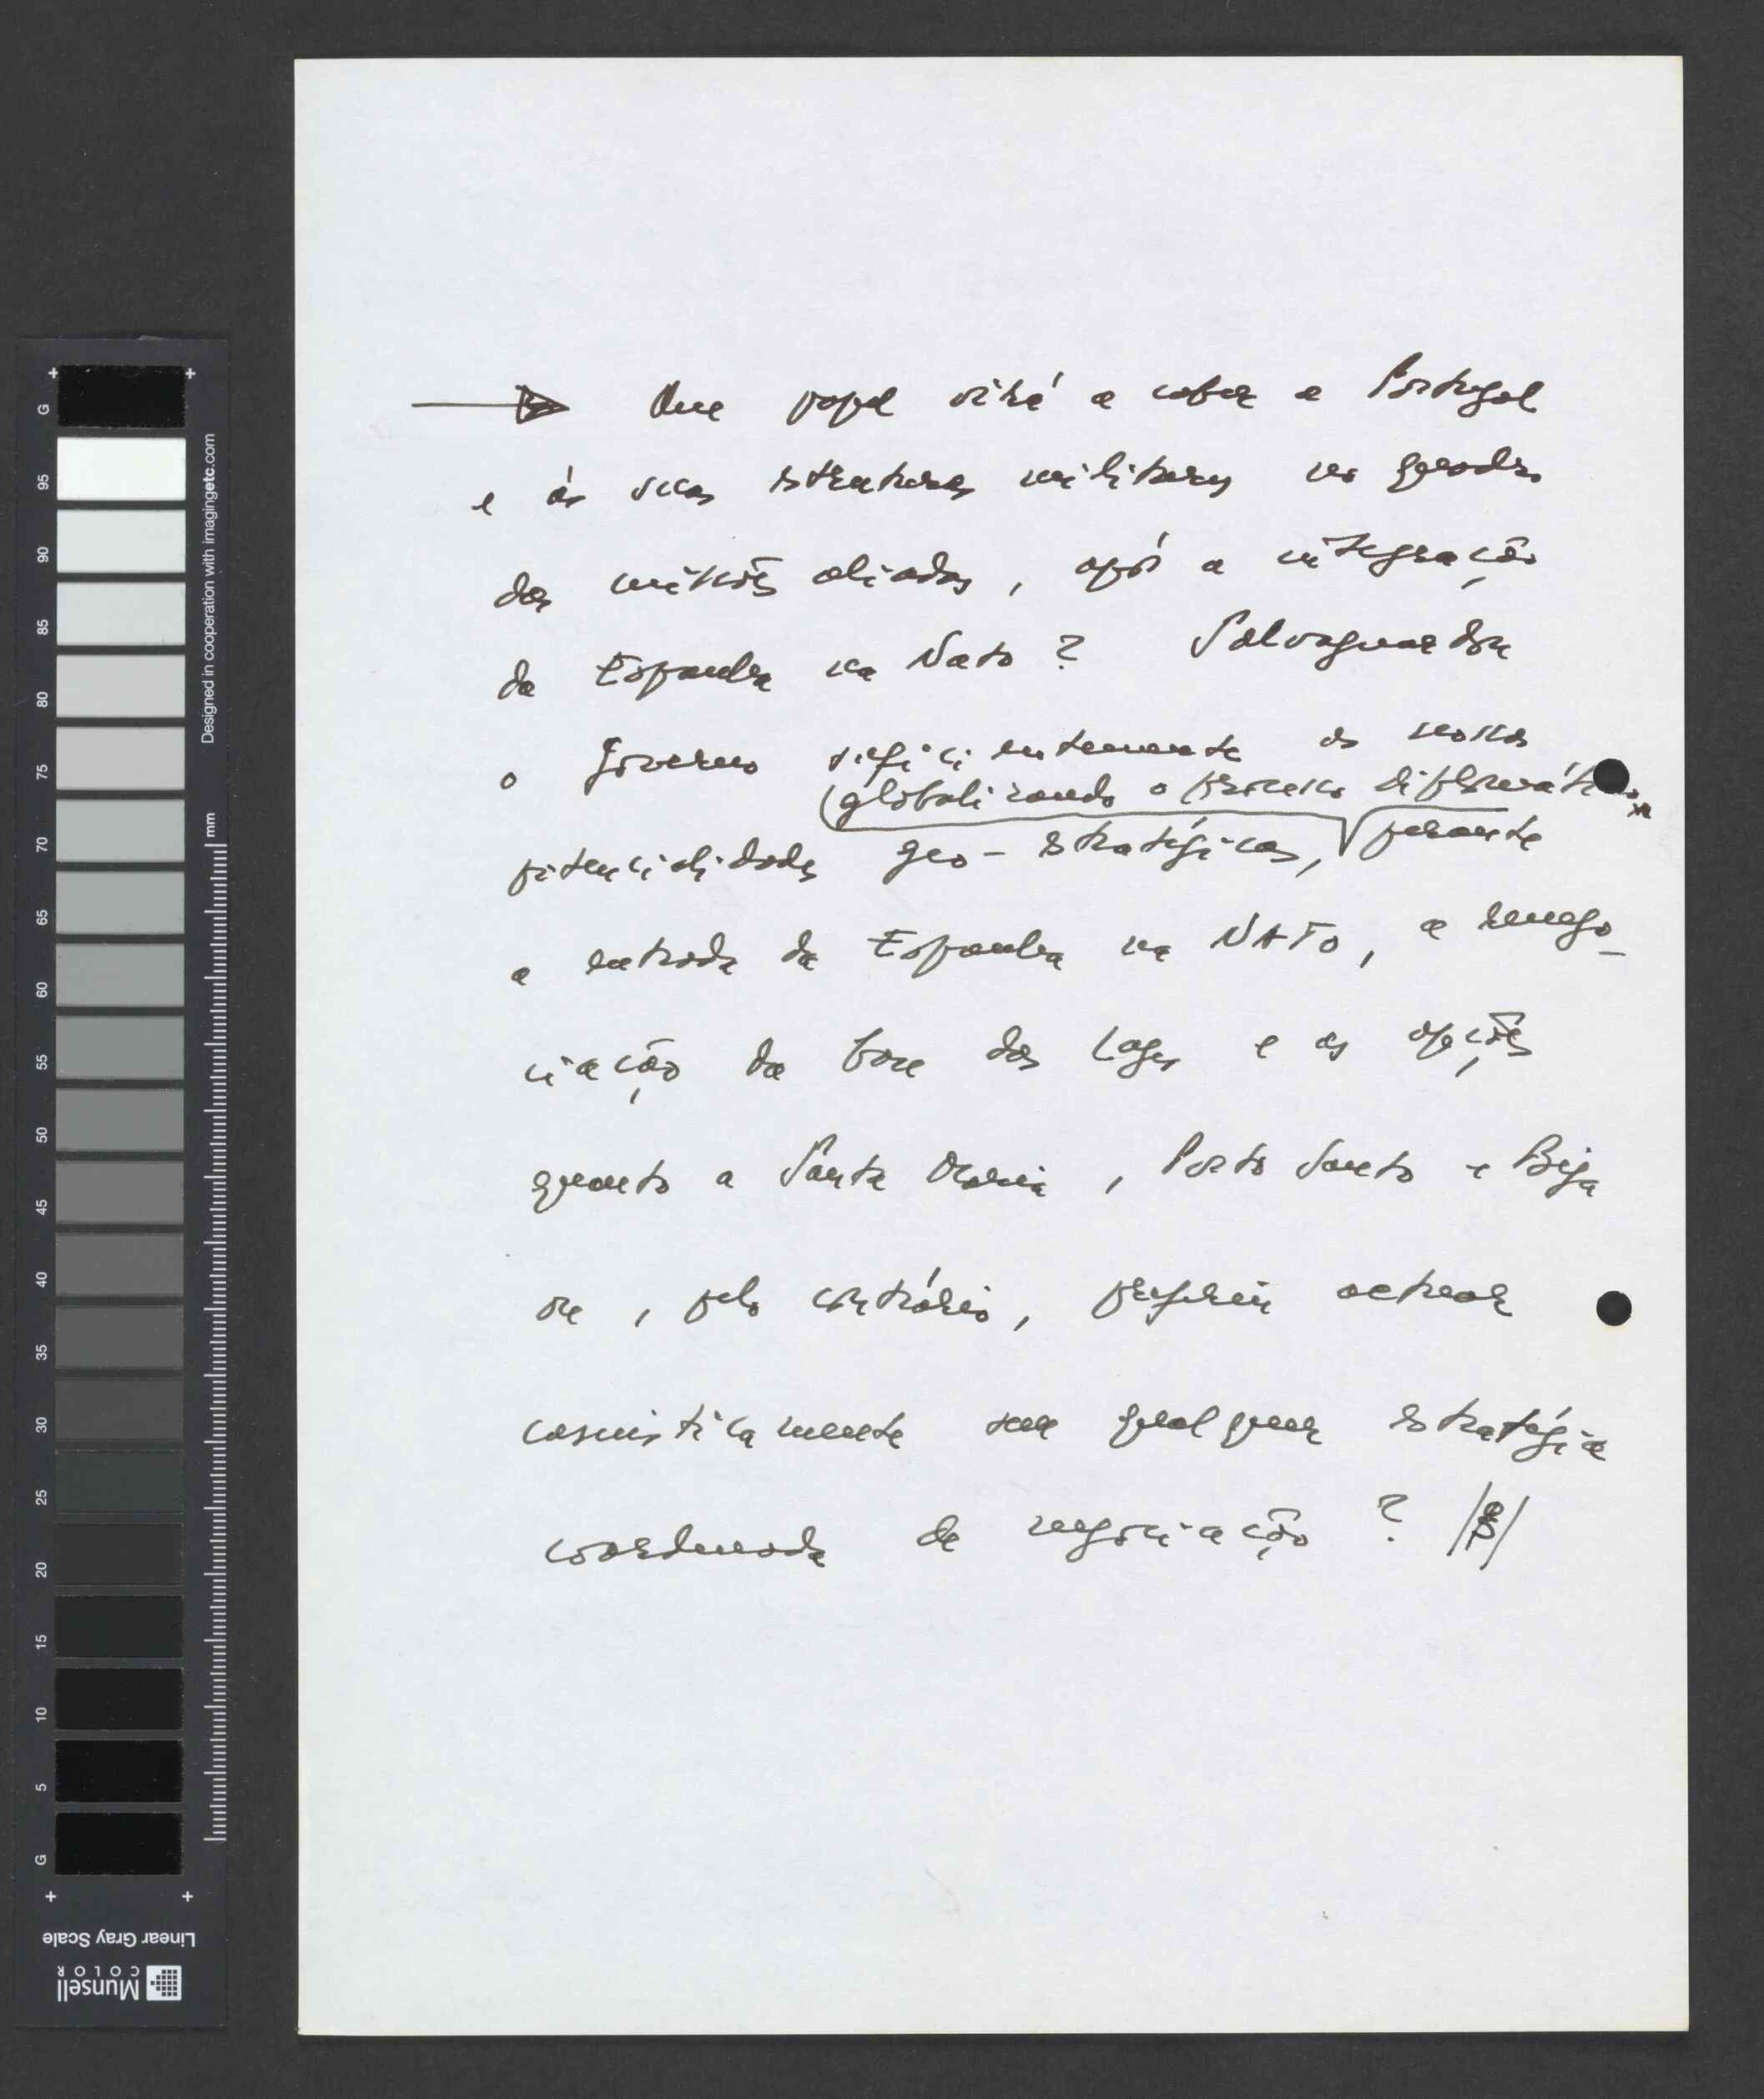 Que papel virá a caber a Portugal
e às suas estruturas militares no quadro
das missões aliadas, após a integração
da Espanha na Nato? Salvaguardou
o Governo suficientemente as nossas
(globalizando o processo diplomático
potencialidades geo-estratégicas, perante
a entrada da Espanha na NATO, a renego-
ciação da base das Lages e as opções
quanto a Santa Maria, Porto Santo e Beja
ou, pelo contrário, preferiu actuar
casuisticamente sem qualquer estratégia
coordenada de negociação?
G 95 90 85 80 75 70 65 60 55 50 45 40 35 30 25 20 15 10 5 G
Designed in cooperation with imagingetc.com
mm
Linear Gray Scale
Munsell
COLOR